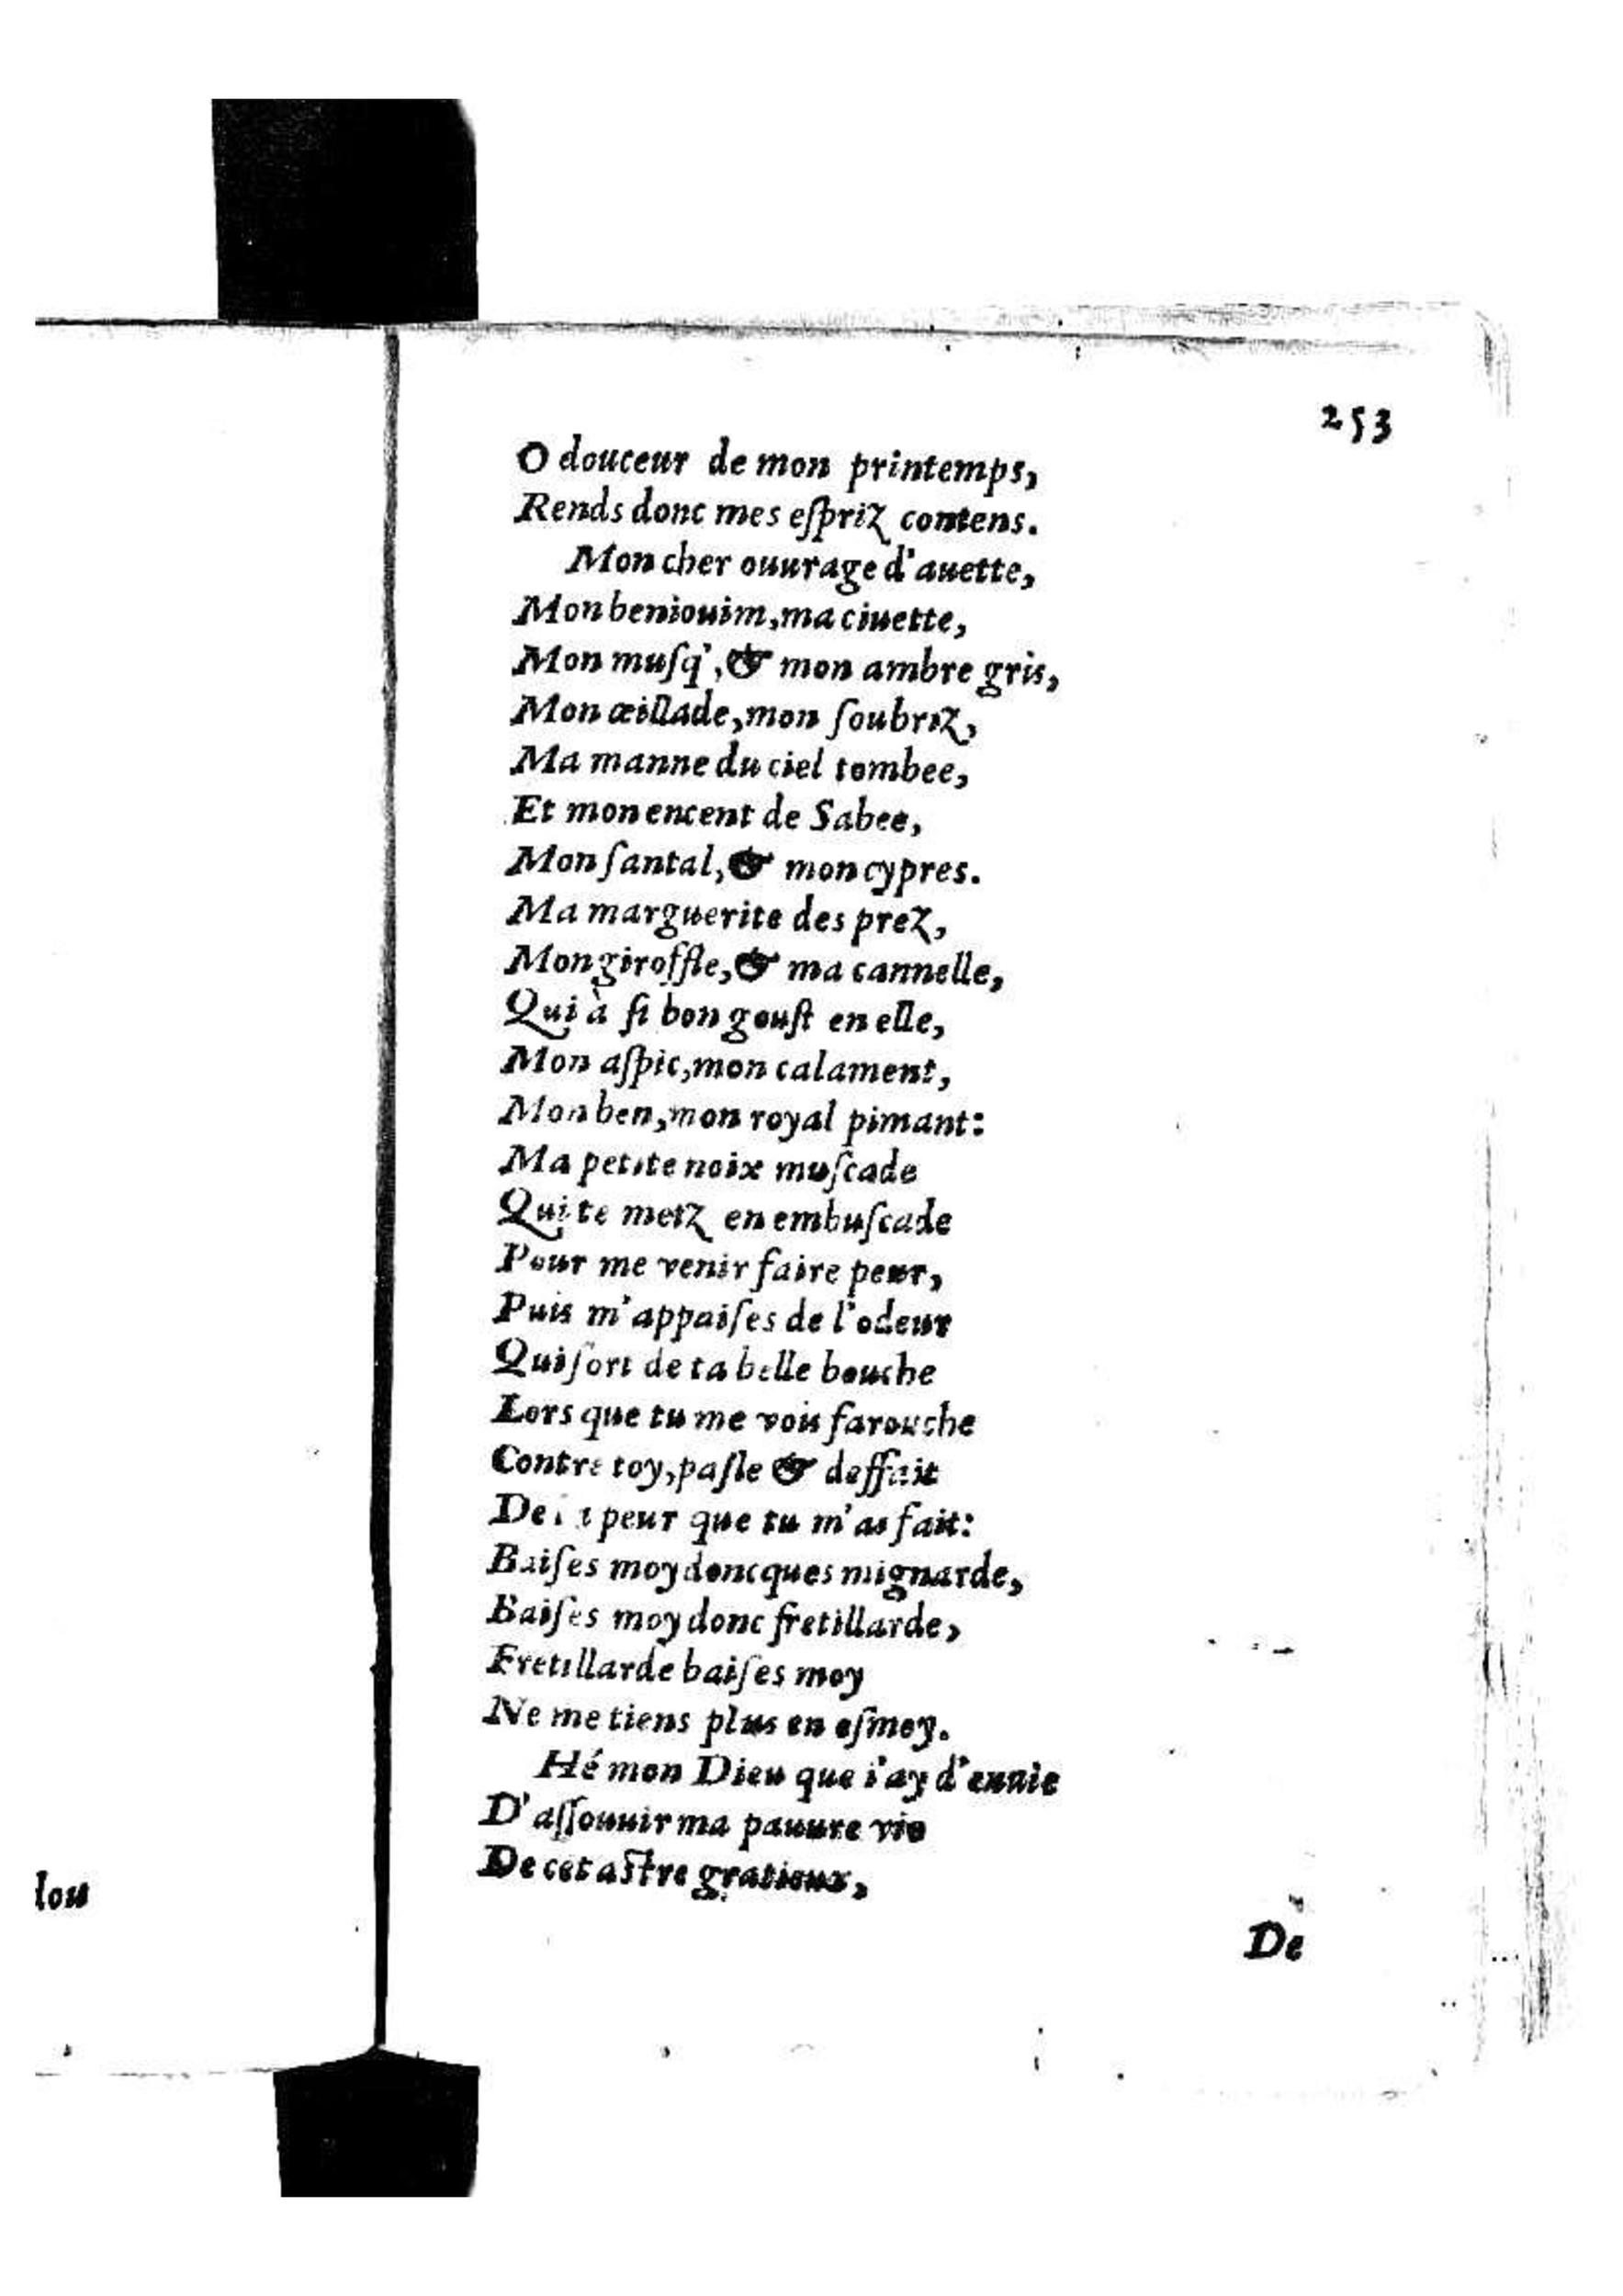 253
O douceur de mon printemps,
Rends donc mes eſpriz contens.
Mon cher ouurage d'auette,
Mon beniouim, ma ciuette,
Mon muſq', & mon ambre gris,
Mon œillade, mon ſoubriz,
Ma manne du ciel tombee,
Et mon encent de Sabee,
Mon ſantal, & mon cypres.
Ma marguerite des prez,
Mon giroffle, & ma cannelle,
Qui à ſi bon gouſt en elle,
Mon aſpic, mon calament,
Mon ben, mon royal pimant:
Ma petite noix muſcade
Qui te metz en embuſcade
Pour me venir faire peur,
Puis m'appaiſes de l'odeur
Qui ſort de ta belle bouche
Lors que tu me vois farouche
Contre toy, paſle & deffait
De la peur que tu m'as fait:
Baiſes moy doncques mignarde,
Baiſes moy donc fretillarde,
Fretillarde baiſes moy
Ne me tiens plus en eſmoy.
Hé mon Dieu que i'ay d'enuie
D'aſſouuir ma pauure vie
De cet aſtre gratieux,
De
lou